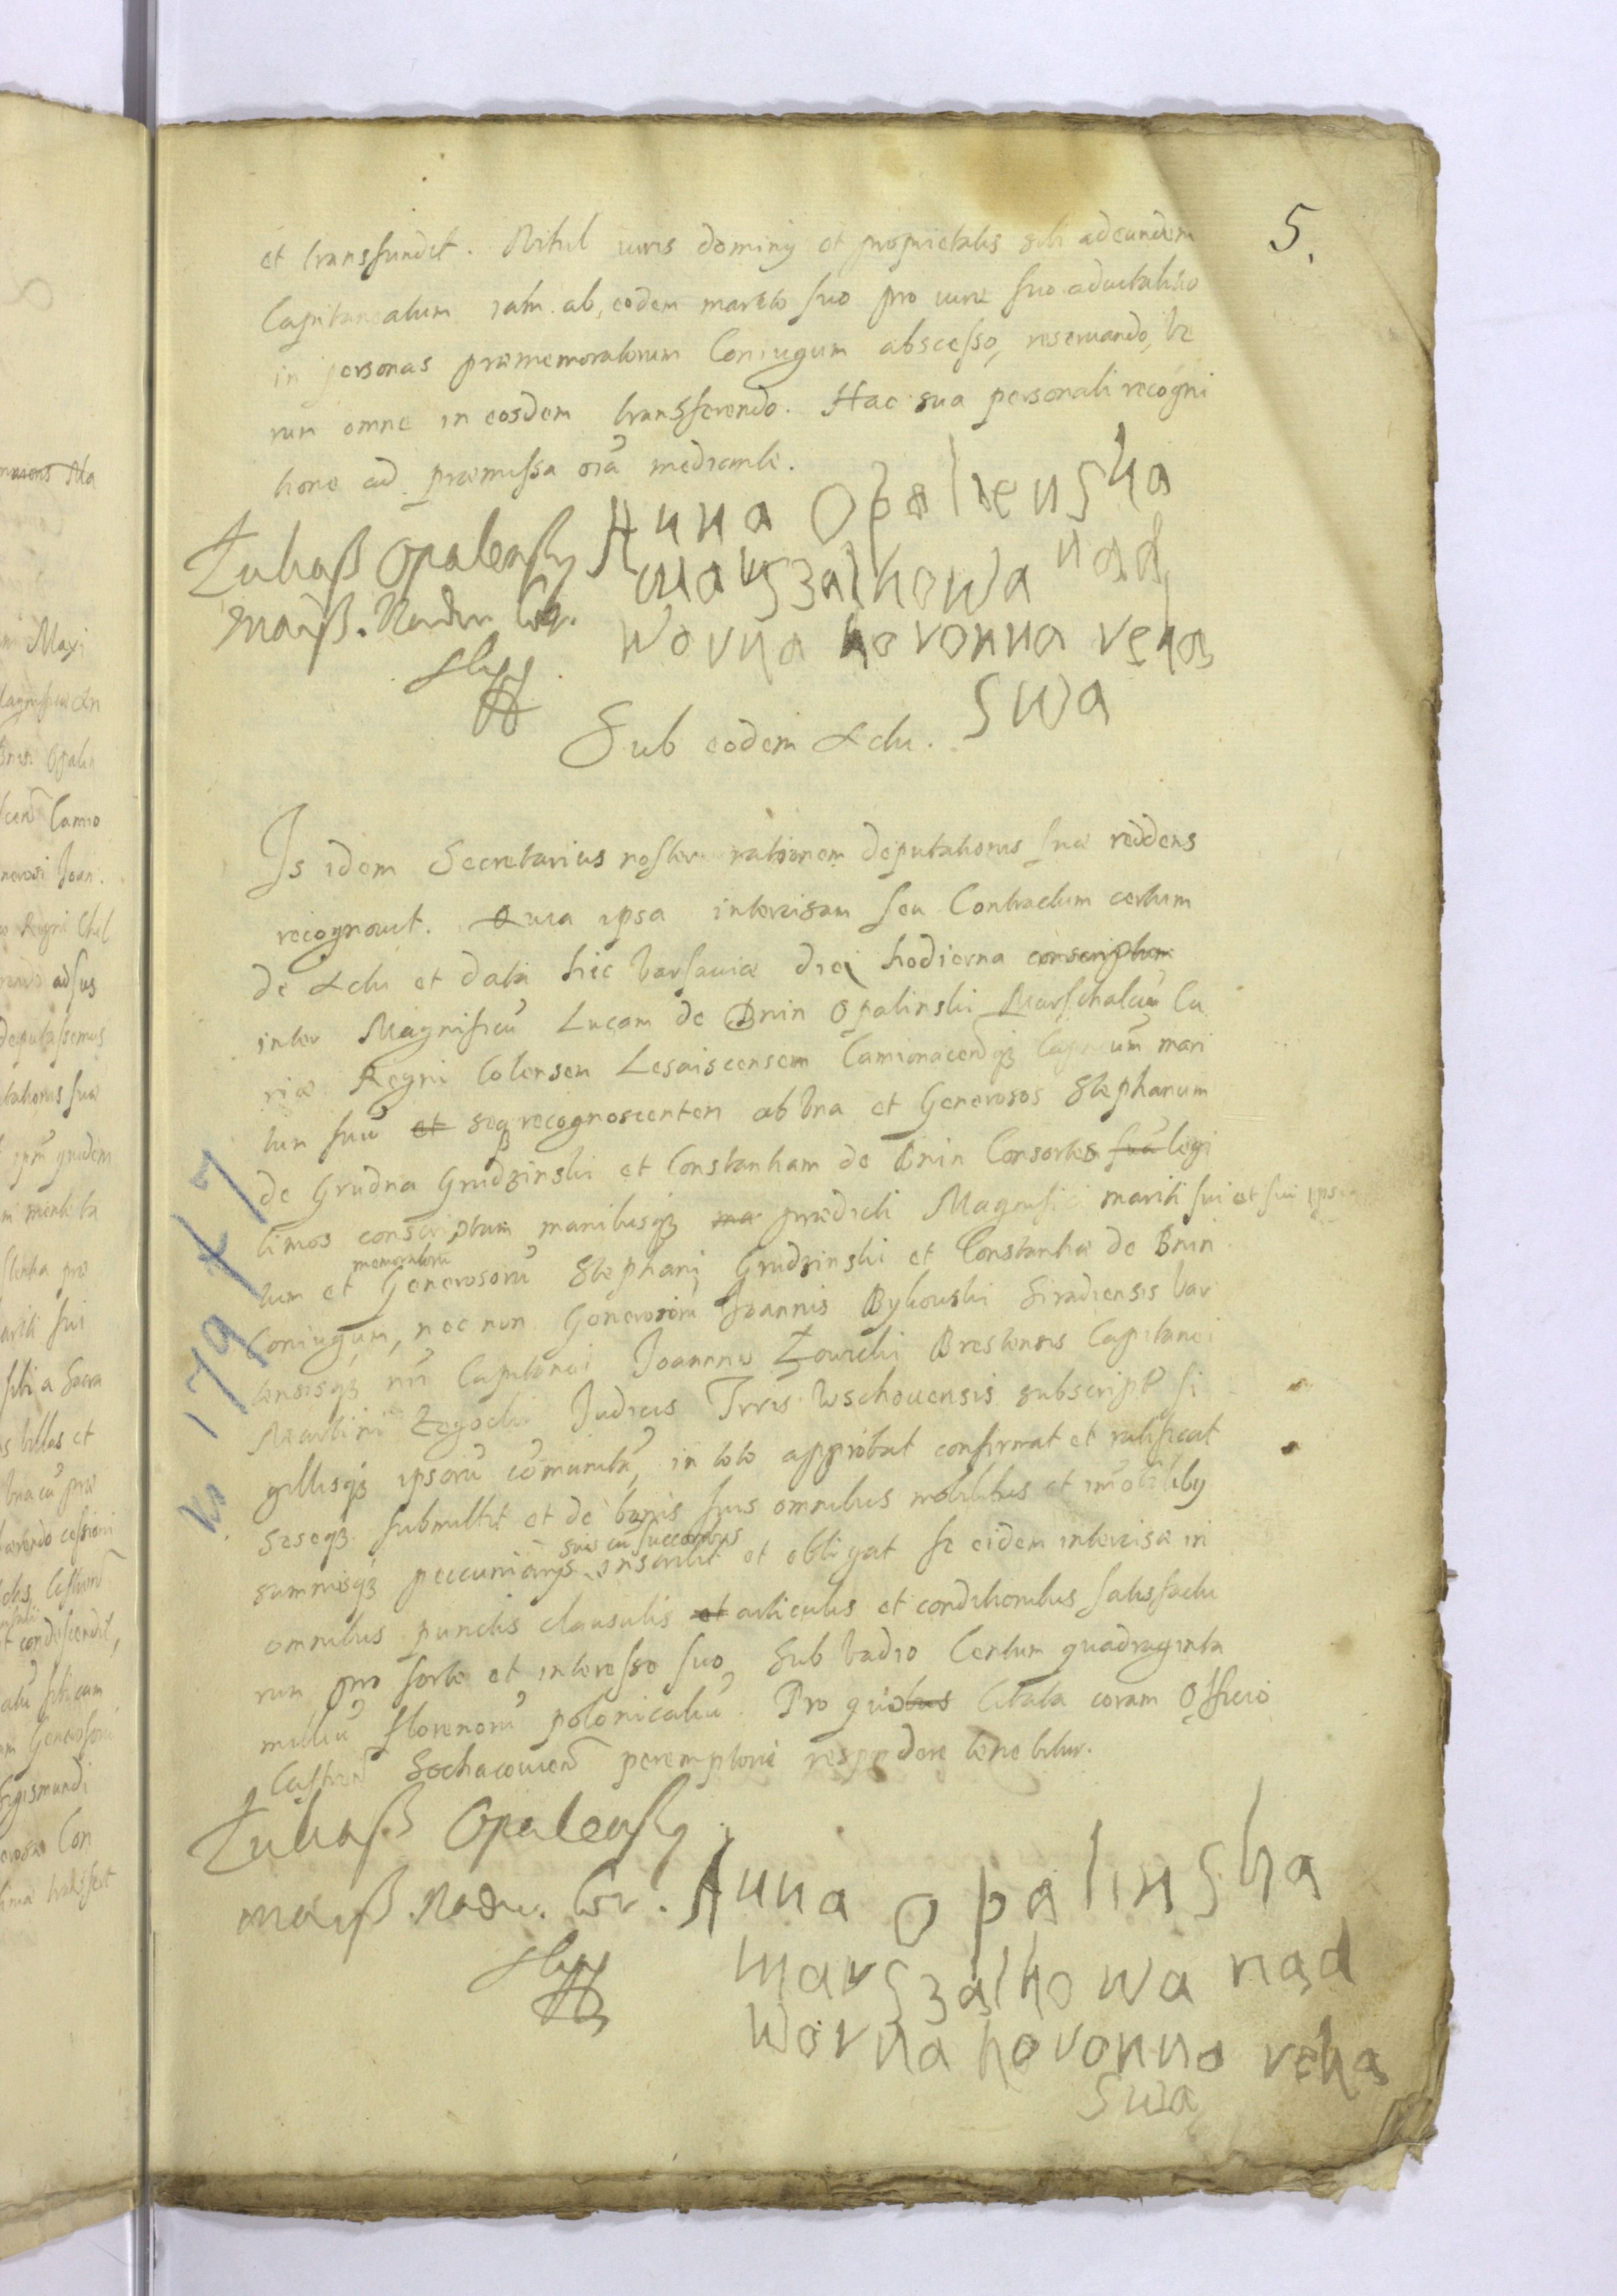 5.
et transfundit. Nihil iuris dominij et proprietatis sibi ad eundem
Capitaneatum iam ab eodem marito suo pro iure suo aduitalitio
in personas præmemoratorum Coniugum abscesso, reseruando, ve
rum omne in eosdem transferendo. Hac sua personali recogni
tione ad præmissa oia mediante.
Łukaß Opalensky Anna Opalienska
Marß. Nadw. Kor. marszalkowa nad
worna koronna ręką
swa
Sub eodem Actu.
Is idem Secretarius noster rationem deputationis suæ reddens
recognouit. Quia ipsa intercisam seu Contractum certum
de Actu et data hic Varsauiæ die hodierna conscriptum
inter Magnificũ Lucam de Bnin Opalinski Marschalcũ Cu
riæ Regni Colensem Lesaiscensem Camionacenqȝ Capneũm mari
tum suũ et seqȝ recognoscentem ab vna et Generosos Stephanum
de Grudna Grudzinski et Constantiam de Bnin Consortes suã legi
timos conscriptum manibusqȝ ma prædicti Magnifici mariti sui et sui ipsi
memoratorũ
tum et Generosorũ Stephani Grudzinski et Constantiæ de Bnin
Coniugum, nec non Generosorũ Joannis Bykowski Siradiensis Var
tensisqȝ nri Capitanei Joannis Zawichi Brestensis Capitanei
Martini Zegochi Judicis Trris Wschouensis subscript si
gillisqȝ ipsorũ cõmunitũ, in toto approbat confirmat et ratificat
seseqȝ submittit et de bonis suis omnibus mobilibus et imobilibus
suis cũ successoribus
summisqȝ peccuniarijs inscribit et obligat se eidem intercisæ in
omnibus punctis clausulis et articulis et conditionibus satisfactu
ram pro sorte et interesse suo, sub vadio Centum quadraginta
milliũ florenorũ polonicaliũ. Pro quibus citata coram Officio
Castren Sochacouien peremptorie respondere tenebitur.
Łukaß Opalensky
Marß. Nadw. Kor. Anna Opalinska
marszalkowa nad
worna koronno ręką
swa